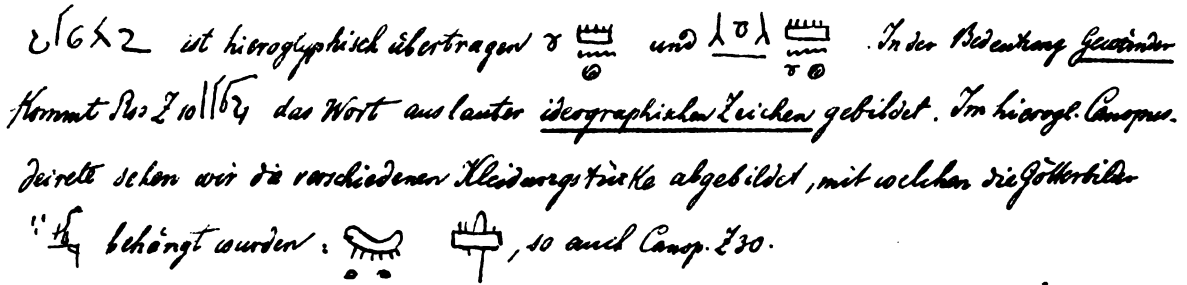 ist hieroglyphisch übertragen und . In der Bedeutung Gewänder
kommt Ros Z 10 das Wort aus lauter ideographischen Zeichen gebildet. Im hierogl. Canopus-
decrete sehen wir die verschiedenen Kleidungstücke abgebildet, mit welchen die Götterbilder
behängt wurden : , so auch Canop. Z 30.